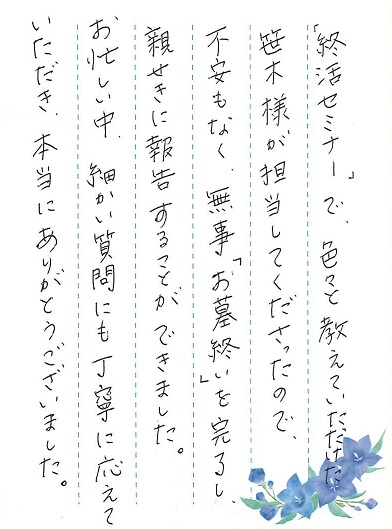 「終活セミナー」で、色々と教えていただけた
笹木様が担当してくださったので、
不安もなく、無事「お墓終い」を完了し、
親せきに報告することができました。
お忙しい中、細かい質問にも丁寧に応えて
いただき、本当にありがとうございました。